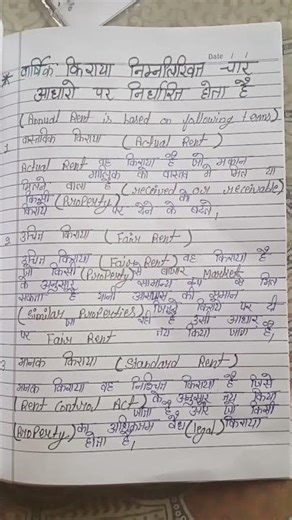 Date / /
* वार्षिक किराया निम्नलिखित चार
आधारो पर निर्धारित होता है
(Annual Rent is based on following terms)
1 वास्तविक किराया (Actual Rent)
Actual Rent वह किराया है जो मकान
मालिक को वास्तव में मिला या
मिलने वाला है (received or receivable)
किसी (Property) के
किराये पर देने के बदले,
2 उचित किराया (Fair Rent)
उचित किराया (Fair Rent) वह किराया है
जो किसी (Property) से बाजार Market
के अनुसार सामान्य रूप से मिल
सकता है यानी आसपास की समान
(Similar Properties) जितने किराये पर दी
जा रही है उसी आधार
पर Fair Rent तय किया जाता है,
3 मानक किराया (Standard Rent)
मानक किराया वह निश्चित किराया है जिसे
(Rent Control Act) के अनुसार तय किया
जाता है और जो किसी
(Property) का अधिकतम वैध (legal) किराया
होता है,